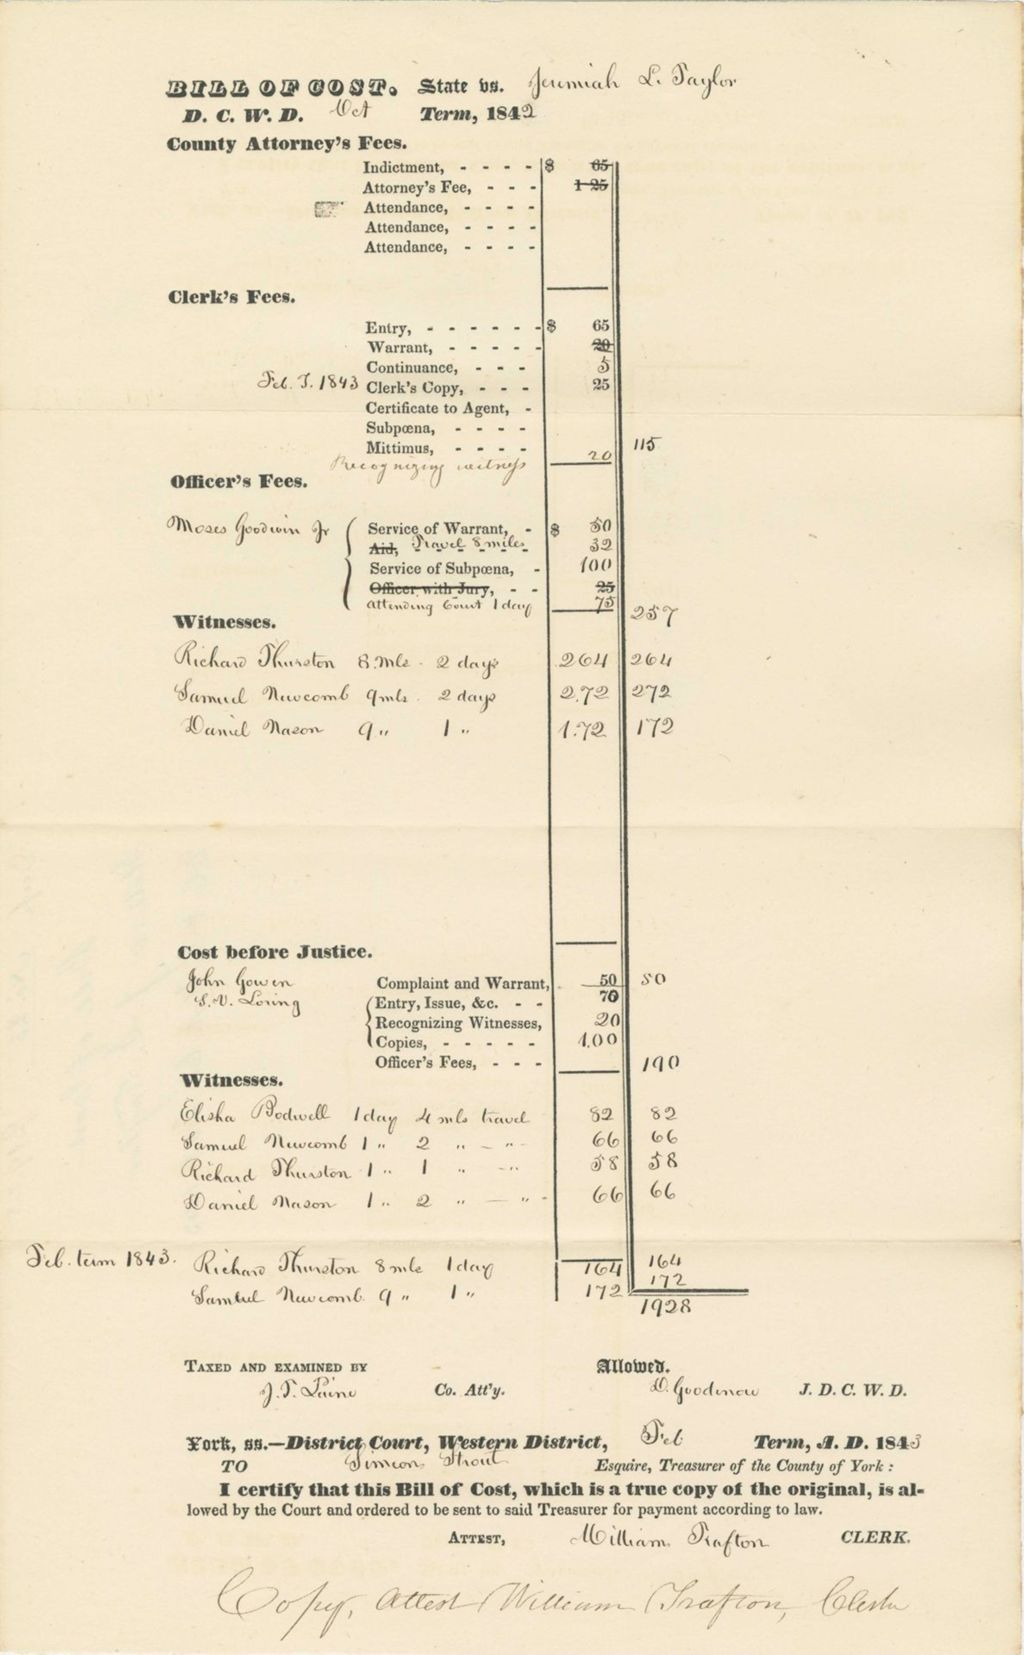 BILL OF COST. State vs. Jeremiah L. Taylor
D. C. W. D. Oct Term, 1842
County Attorney's Fees.
Indictment, - - - - $ 65
Attorney's Fee, - - - 1 25
Attendance, - - - -
Attendance, - - - -
Attendance, - - - -
Clerk's Fees.
Entry, - - - - - - $ 65
Warrant, - - - - - 20
Continuance, - - - 5
Feb. T. 1843 Clerk's Copy, - - - 25
Certificate to Agent, -
Subpœna, - - - -
Mittimus, - - - - 115
Recognizing witness 20
Officer's Fees.
Moses Goodwin Jr Service of Warrant, - $ 50
Aid, Travel 8 miles 32
Service of Subpœna, - 100
Officer with Jury, - - 25
attending Court 1 day 75 257
Witnesses.
Richard Thurston 8 Mls. 2 days 264 264
Samuel Newcomb 9 mls. 2 days 2.72 272
Daniel Nason 9 " 1 " 1.72 172
Cost before Justice.
John Gowen Complaint and Warrant, 50 50
S. V. Loring Entry, Issue, &c. - - 70
Recognizing Witnesses, 20
Copies, - - - - - 1.00
Officer's Fees, - - - 190
Witnesses.
Elisha Bodwell 1 day 4 mls travel 82 82
Samuel Newcomb 1 " 2 " - " - 66 66
Richard Thurston 1 " 1 " - " 58 58
Daniel Nason 1 " 2 " - " - 66 66
Feb. term 1843. Richard Thurston 8 mls 1 day 164 164
Samuel Newcomb 9 " 1 " 172 172
1928
TAXED AND EXAMINED BY Allowed.
Co. Att'y. D. Goodenow J. D. C. W. D.
York, ss.—District Court, Western District, Feb Term, A. D. 1843
TO Simeon Strout Esquire, Treasurer of the County of York :
I certify that this Bill of Cost, which is a true copy of the original, is al-
lowed by the Court and ordered to be sent to said Treasurer for payment according to law.
ATTEST, William Trafton CLERK.
Copy, Attest William Trafton, Clerk